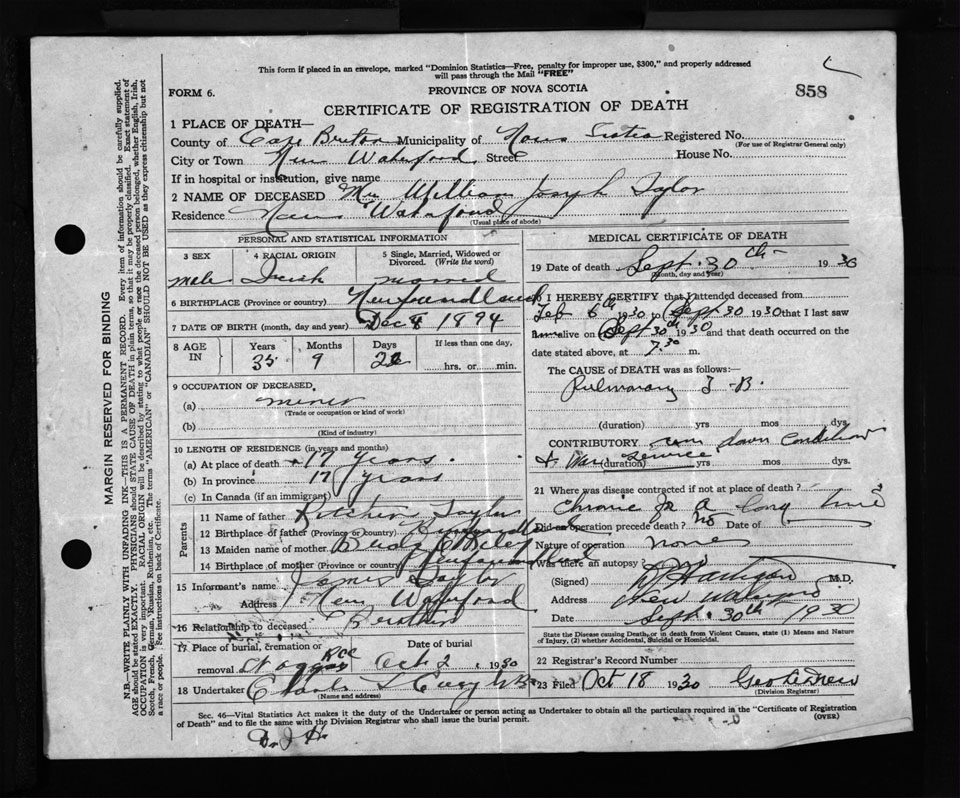 This form if placed in an envelope, marked "Dominion Statistics—Free, penalty for improper use, $300," and properly addressed
will pass through the Mail "FREE"
FORM 6.
PROVINCE OF NOVA SCOTIA
858
CERTIFICATE OF REGISTRATION OF DEATH
1 PLACE OF DEATH—
County of Cape Breton Municipality of Nova Scotia Registered No.
(For use of Registrar General only)
City or Town New Waterford Street House No.
If in hospital or institution, give name
2 NAME OF DECEASED Mr William Joseph Taylor
Residence New Waterford
(Usual place of abode)
PERSONAL AND STATISTICAL INFORMATION
3 SEX 4 RACIAL ORIGIN 5 Single, Married, Widowed or Divorced. (Write the word)
male Irish married
6 BIRTHPLACE (Province or country) Newfoundland
7 DATE OF BIRTH (month, day and year) Dec 8 1894
8 AGE IN Years Months Days If less than one day,
35 9 22 hrs. or min.
9 OCCUPATION OF DECEASED.
(a) miner
(Trade or occupation or kind of work)
(b)
(Kind of industry)
10 LENGTH OF RESIDENCE (in years and months)
(a) At place of death 17 years
(b) In province 17 years
(c) In Canada (if an immigrant)
Parents
11 Name of father Taylor
12 Birthplace of father (Province or country) Newfoundland
13 Maiden name of mother
14 Birthplace of mother (Province or country)
15 Informant's name James Taylor
Address New Waterford
16 Relationship to deceased Brother
17 Place of burial, cremation or removal Date of burial
Oct 2 1930
18 Undertaker
(Name and address)
MEDICAL CERTIFICATE OF DEATH
19 Date of death Sept. 30th 1930
(Month, day and year)
I HEREBY CERTIFY that I attended deceased from
Feb 6th 1930 to Sept 30 1930 that I last saw
alive on Sept 30th 1930 and that death occurred on
date stated above, at 7.30 m.
The CAUSE of DEATH was as follows:—
Pulmonary T-B.
(duration) yrs mos dys.
CONTRIBUTORY run down condition
& War service
(duration) yrs mos dys.
21 Where was disease contracted if not at place of death?
Chronic for a long time
Did an operation precede death? No Date of
Nature of operation none
Was there an autopsy?
(Signed) M.D.
Address New Waterford
Date Sept. 30th 1930
State the Disease causing Death, or in death from Violent Causes, state (1) Means and Nature
of Injury, (2) whether Accidental, Suicidal or Homicidal.
22 Registrar's Record Number
23 Filed Oct 18 1930
(Division Registrar)
Sec. 46—Vital Statistics Act makes it the duty of the Undertaker or person acting as Undertaker to obtain all the particulars required in the "Certificate of Registration
of Death" and to file the same with the Division Registrar who shall issue the burial permit.
(OVER)
MARGIN RESERVED FOR BINDING
N.B.—WRITE PLAINLY WITH UNFADING INK—THIS IS A PERMANENT RECORD. Every item of information should be carefully supplied.
AGE should be stated EXACTLY. PHYSICIANS should STATE CAUSE OF DEATH in plain terms, so that it may be properly classified. Exact statement of
OCCUPATION is very important. RACIAL ORIGIN will be described by stating to what people or race the deceased person belonged, whether English, Irish,
Scotch, French, German, Russian, Ruthenian, etc. The terms "AMERICAN" or "CANADIAN" SHOULD NOT BE USED as they express citizenship but not
a race or people. See instructions on back of Certificate.